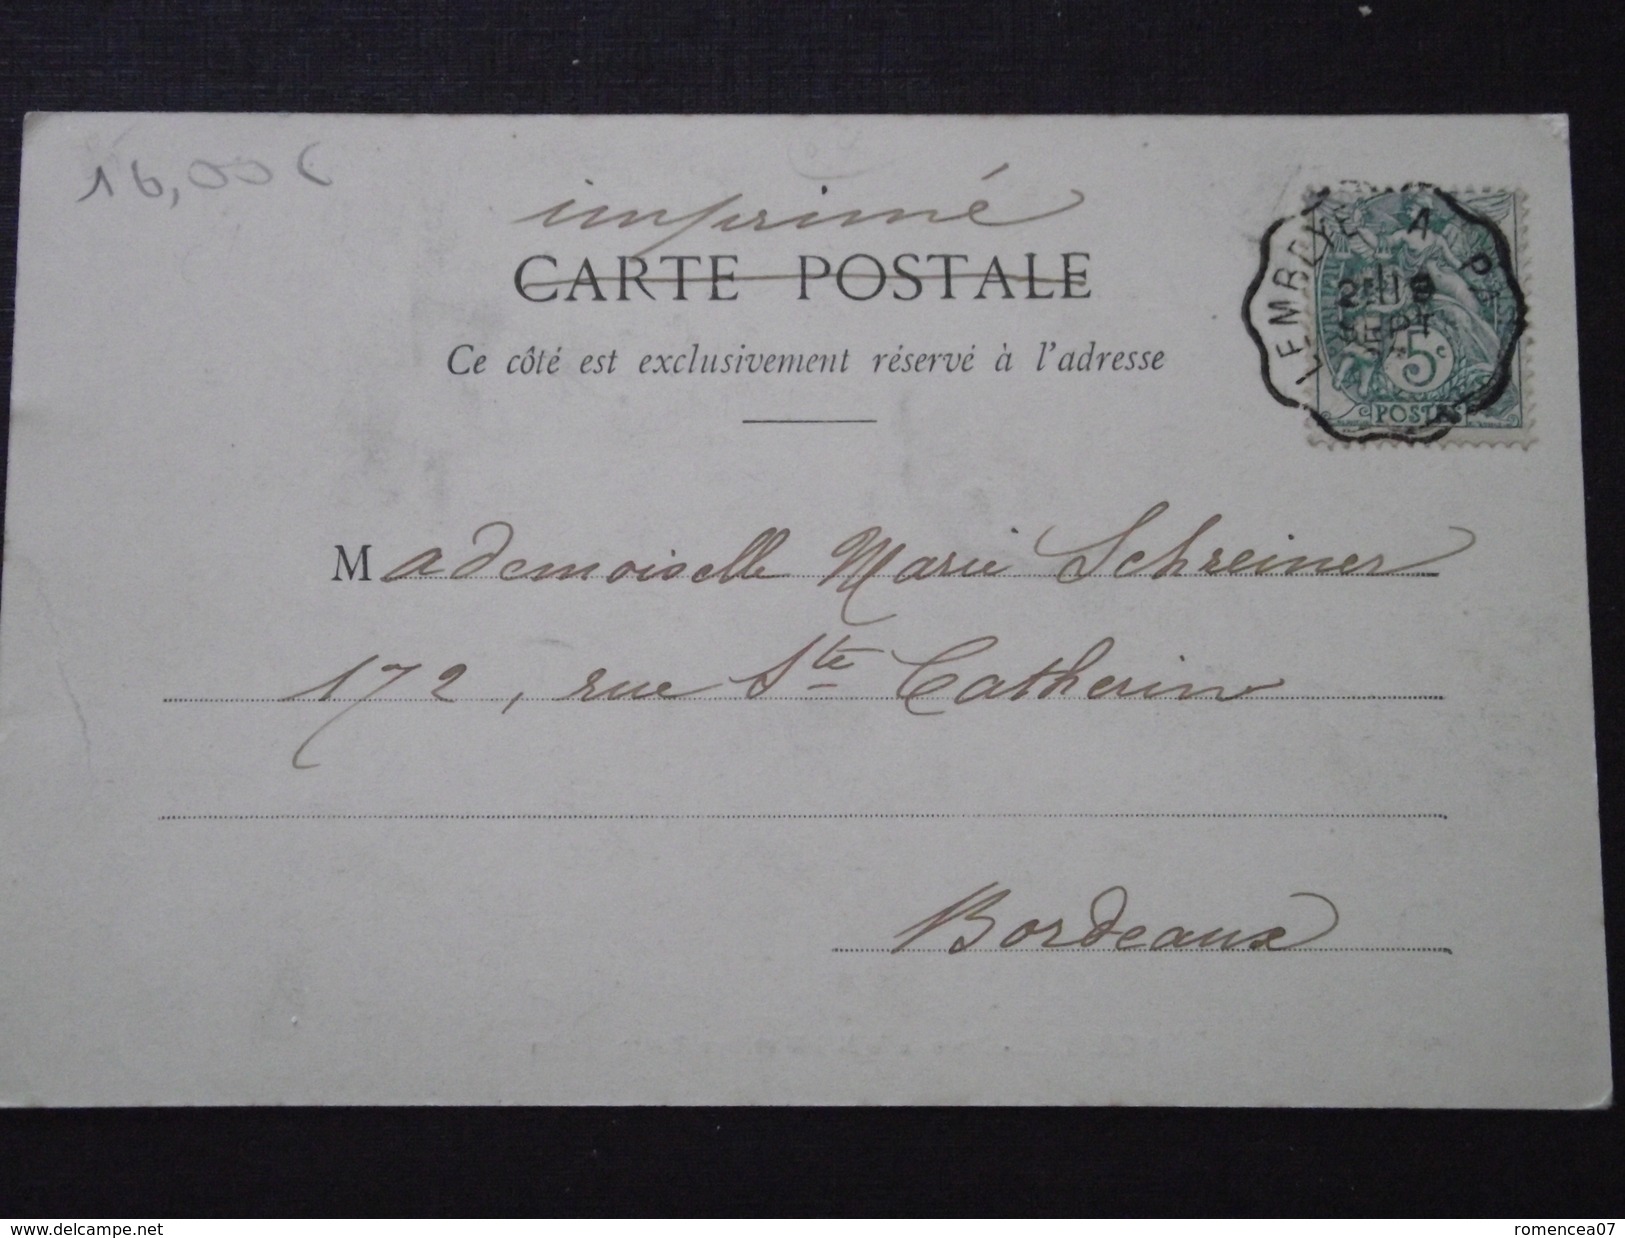 16,00€
imprimé
CARTE POSTALE
Ce côté est exclusivement réservé à l'adresse
LEMBEYE A PAU
SEPT
5c
POSTES
Mademoiselle Marie Schreiner
172, rue Ste Catherine
Bordeaux
www.delcampe.net
romencea07